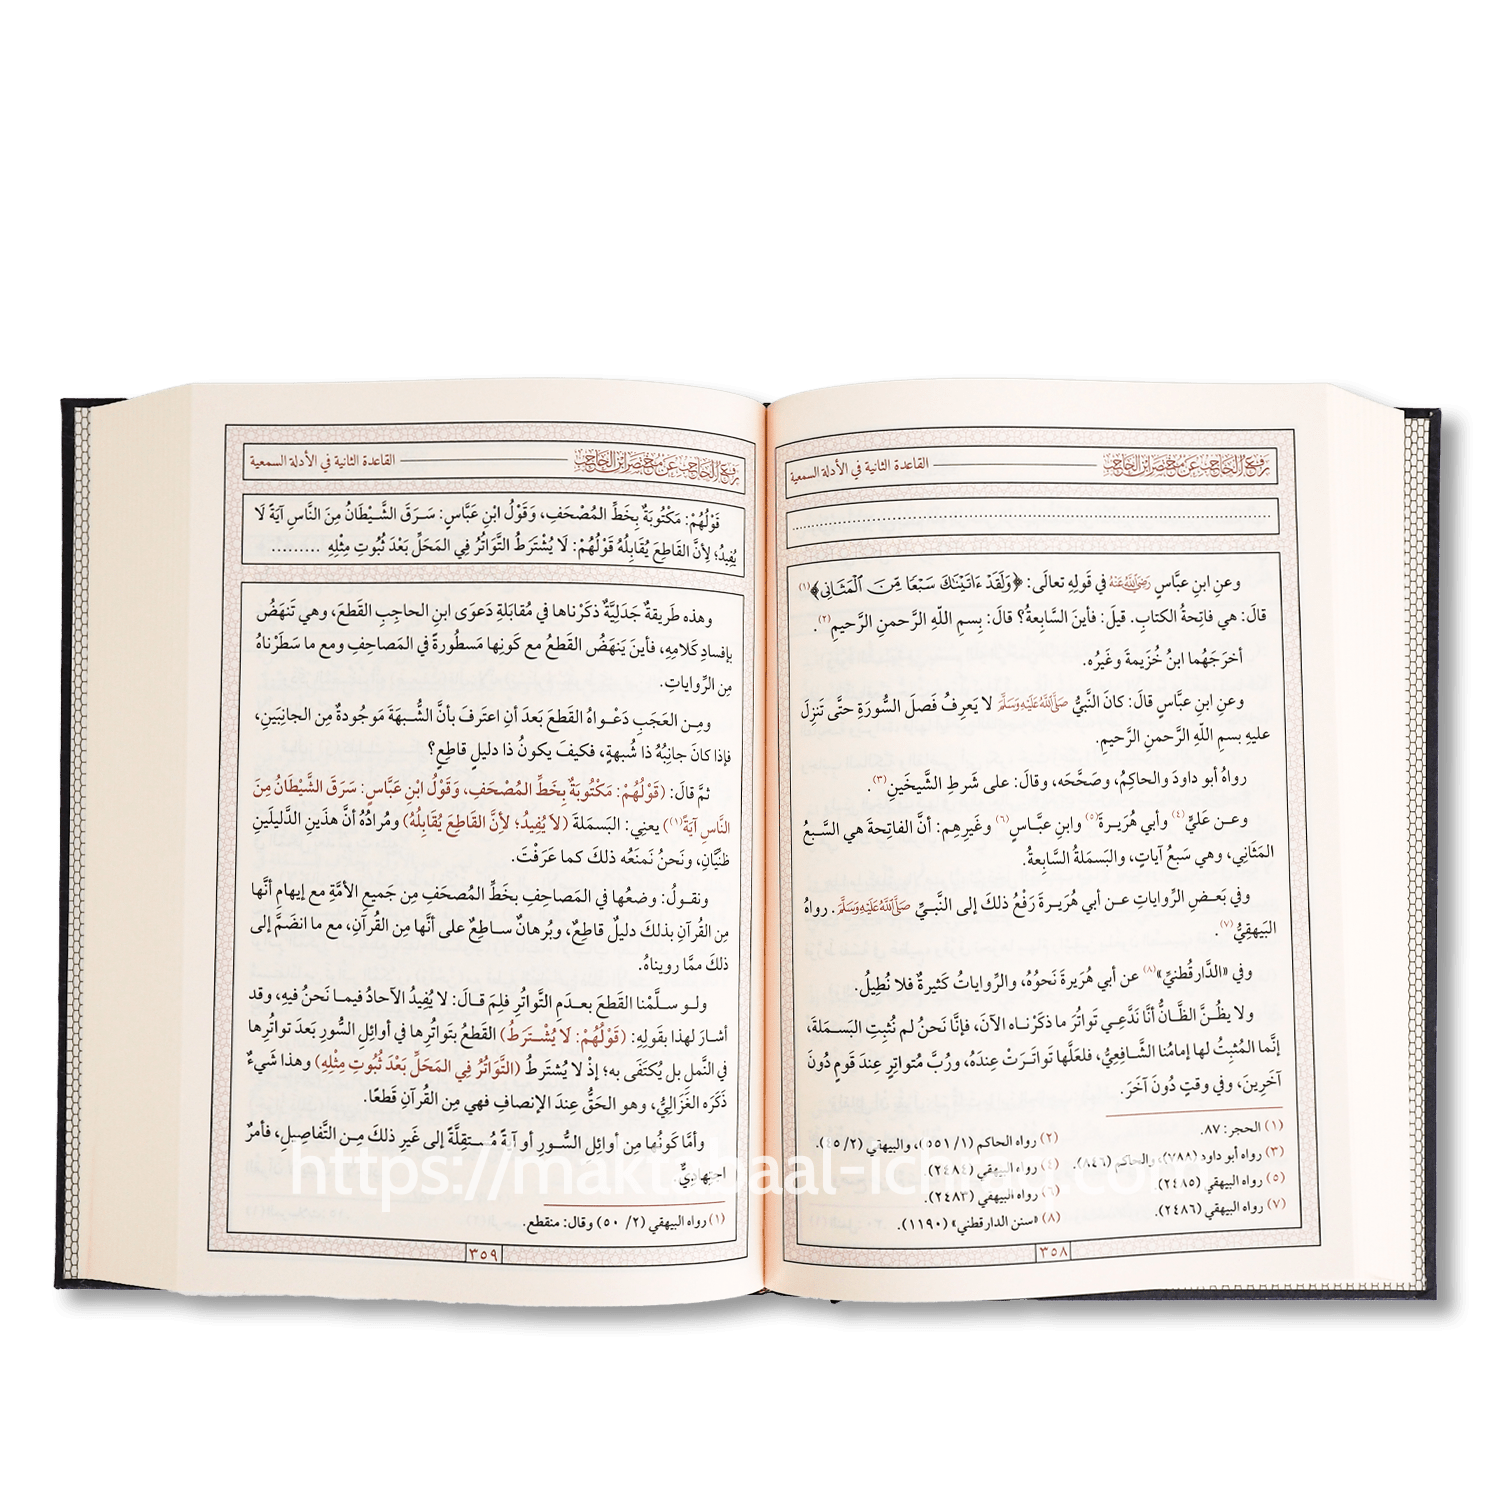 رفع الحاجب عن مختصر ابن الحاجب
القاعدة الثانية في الأدلة السمعية
وعنِ ابنِ عبَّاسٍ رَضِيَ اللَّهُ عَنْهُ في قَولِهِ تعالَى: ﴿وَلَقَدْ ءَاتَيْنَٰكَ سَبْعًا مِّنَ ٱلْمَثَانِى﴾(١)
قالَ: هي فاتِحةُ الكتابِ. قيلَ: فأينَ السَّابِعةُ؟ قالَ: بِسمِ اللّهِ الرَّحمنِ الرَّحيمِ(٢).
أخرَجَهُما ابنُ خُزَيمةَ وغَيرُه.
وعنِ ابنِ عبَّاسٍ قالَ: كانَ النَّبيُّ صَلَّى اللَّهُ عَلَيْهِ وَسَلَّمَ لا يَعرِفُ فَصلَ السُّورَةِ حتَّى تَنزِلَ
عليهِ بسمِ اللّهِ الرَّحمنِ الرَّحيمِ.
رواهُ أبو داودَ والحاكِمُ، وصَحَّحَه، وقالَ: على شَرطِ الشَّيخَينِ(٣).
وعـن عَليٍّ(٤) وأبي هُرَيـرةَ(٥) وابنِ عبَّـاسٍ(٦) وغَيرِهِم: أنَّ الفاتِحةَ هي السَّبعُ
المَثَانِي، وهي سَبعُ آياتٍ، والبَسمَلةُ السَّابِعةُ.
وفي بَعـضِ الرِّواياتِ عـن أبي هُرَيـرةَ رَفْعُ ذلكَ إلى النَّبـيِّ صَلَّى اللَّهُ عَلَيْهِ وَسَلَّمَ. رواهُ
البَيهقِيُّ(٧).
وفي «الدَّارقُطنيِّ»(٨) عن أبي هُرَيرةَ نَحوُهُ، والرِّواياتُ كَثيرةٌ فلا نُطِيلُ.
ولا يظُـنَّ الظَّـانُّ أنَّا نَدَّعـي تَواتُرَ ما ذكَرْنـاه الآنَ، فإنَّا نَحنُ لم نُثبِتِ البَسـمَلةَ،
إنَّما المُثبِتُ لها إمامُنا الشَّـافعِيُّ، فلعَلَّها تَواتَـرَتْ عِندَهُ، ورُبَّ مُتواتِرٍ عِندَ قَومٍ دُونَ
آخَرِينَ، وفي وقتٍ دُونَ آخَرَ.
(١) الحجر: ٨٧.
(٢) رواه الحاكم (١/ ٥٥١)، والبيهقي (٢/ ٤٥).
(٣) رواه أبو داود (٧٨٨)، والحاكم (٨٤٦).
(٤) رواه البيهقي (٢٤٨٤).
(٥) رواه البيهقي (٢٤٨٥).
(٦) رواه البيهقي (٢٤٨٣).
(٧) رواه البيهقي (٢٤٨٦).
(٨) «سنن الدارقطني» (١١٩٠).
٣٥٨
رفع الحاجب عن مختصر ابن الحاجب
القاعدة الثانية في الأدلة السمعية
قَوْلُهُمْ: مَكْتُوبَةٌ بِخَطِّ المُصْحَفِ، وَقَوْلُ ابْنِ عَبَّاسٍ: سَرَقَ الشَّـيْطَانُ مِنَ النَّاسِ آيَةً لَا
يُفِيدُ؛ لِأنَّ القَاطِعَ يُقَابِلُهُ قَوْلُهُمْ: لَا يُشْتَرَطُ التَّوَاتُرُ فِي المَحَلِّ بَعْدَ ثُبُوتِ مِثْلِهِ .........
وهذه طَرِيقةٌ جَدَليَّةٌ ذكَرْناها في مُقابَلةِ دَعوَى ابنِ الحاجِبِ القَطعَ، وهي تَنهَضُ
بإفسادِ كَلامِهِ، فأينَ يَنهَضُ القَطعُ مع كَونِها مَسطُورةً في المَصاحِفِ ومع ما سَطَرْناهُ
مِن الرِّواياتِ.
ومِـن العَجَبِ دَعْـواهُ القَطعَ بَعدَ أنِ اعتَرفَ بأنَّ الشُّـبهَةَ مَوجُودةٌ مِن الجانِبَينِ،
فإذا كانَ جانِبُهُ ذا شُبهةٍ، فكيفَ يكونُ ذا دليلٍ قاطِعٍ؟
ثمَّ قالَ: (قَوْلُهُمْ: مَكْتُوبَةٌ بِخَطِّ المُصْحَفِ، وَقَوْلُ ابْنِ عَبَّاسٍ: سَرَقَ الشَّيْطَانُ مِنَ
النَّاسِ آيَةً(١)) يعنِي: البَسمَلةَ (لَا يُفِيدُ؛ لِأنَّ القَاطِعَ يُقَابِلُهُ) ومُرادُهُ أنَّ هذَينِ الدَّليلَينِ
ظنَّيَّانِ، ونَحنُ نَمنَعُه ذلكَ كما عَرَفْتَ.
ونقـولُ: وضعُها في المَصاحِفِ بخَطِّ المُصحَفِ مِن جَميعِ الأمَّةِ مع إيهامِ أنَّها
مِن القُرآنِ بذلكَ دليلٌ قاطِعٌ، وبُرهانٌ سـاطِعٌ على أنَّها مِن القُرآنِ، مع ما انضَمَّ إلى
ذلكَ ممَّا رويناهُ.
ولـو سـلَّمْنا القَطعَ بعـدَمِ التَّواتُرِ فلِمَ قـالَ: لا يُفِيدُ الآحادُ فيمـا نَحنُ فيهِ، وقد
أشـارَ لهذا بقَولِهِ: (قَوْلُهُمْ: لَا يُشْـتَرَطُ) القَطعُ بتَواتُرِها في أوائِلِ السُّورِ بَعدَ تواتُرِها
في النَّمل بل يُكتَفَى به؛ إذْ لا يُشتَرطُ (التَّوَاتُرُ فِي المَحَلِّ بَعْدَ ثُبُوتِ مِثْلِهِ) وهذا شَيءٌ
ذكَرَه الغَزَاليُّ، وهو الحَقُّ عِندَ الإنصافِ فهي مِن القُرآنِ قَطعًا.
وأمَّا كَونُها مِن أوائِلِ السُّـورِ أو آيـةً مُسـتقِلَّةً إلى غَيرِ ذلكَ مِـن التَّفاصِيلِ، فأمرٌ
اجتِهاديٌّ.
(١) رواه البيهقي (٢/ ٥٠) وقال: منقطع.
٣٥٩